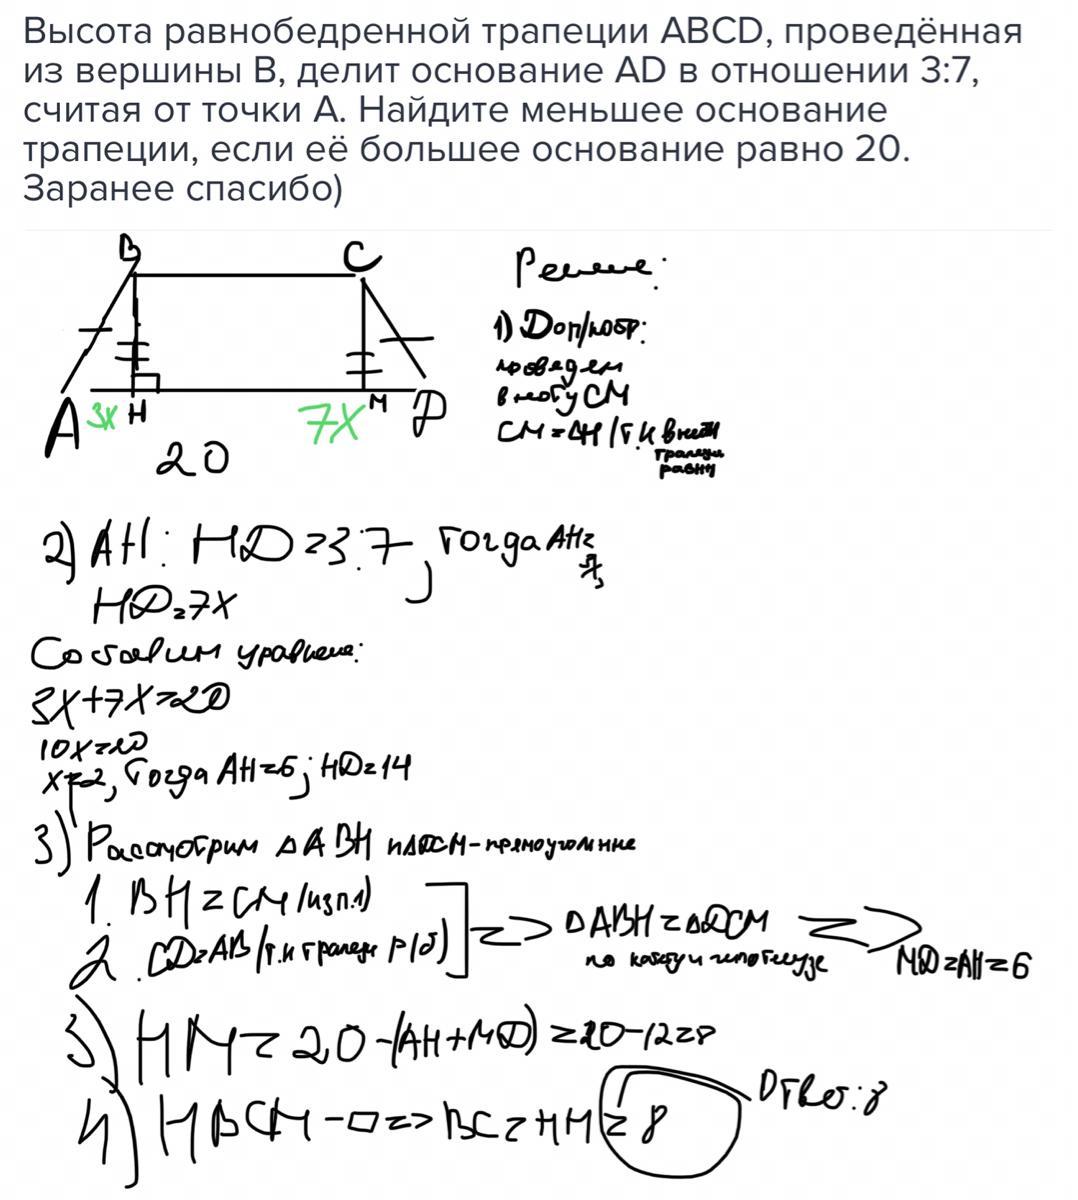 Высота равнобедренной трапеции ABCD, проведённая
из вершины B, делит основание AD в отношении 3:7,
считая от точки A. Найдите меньшее основание
трапеции, если её большее основание равно 20.
Заранее спасибо)
B C
A 3x H 7x M D
20
Решение:
1) Доп/постр:
проведём
высоту CM
/т.к высоты
трапеции
равны
2) AH : HD = 3:7, тогда AH =
HD = 7x
Составим уравнение:
3x+7x=20
10x=20
x=2, тогда AH=6; HD=14
3) Рассмотрим △ABH и △DCM - прямоугольные
1. BH = CM /из п.1)
2. CD=AB /т.к трапеция р/б) => △ABH = △DCM => MD=AH=6
по катету и гипотенузе
3) HM = 20-(AH+MD) =20-12=8
4) HBCM - ▭ => BC = HM = 8
Ответ: 8